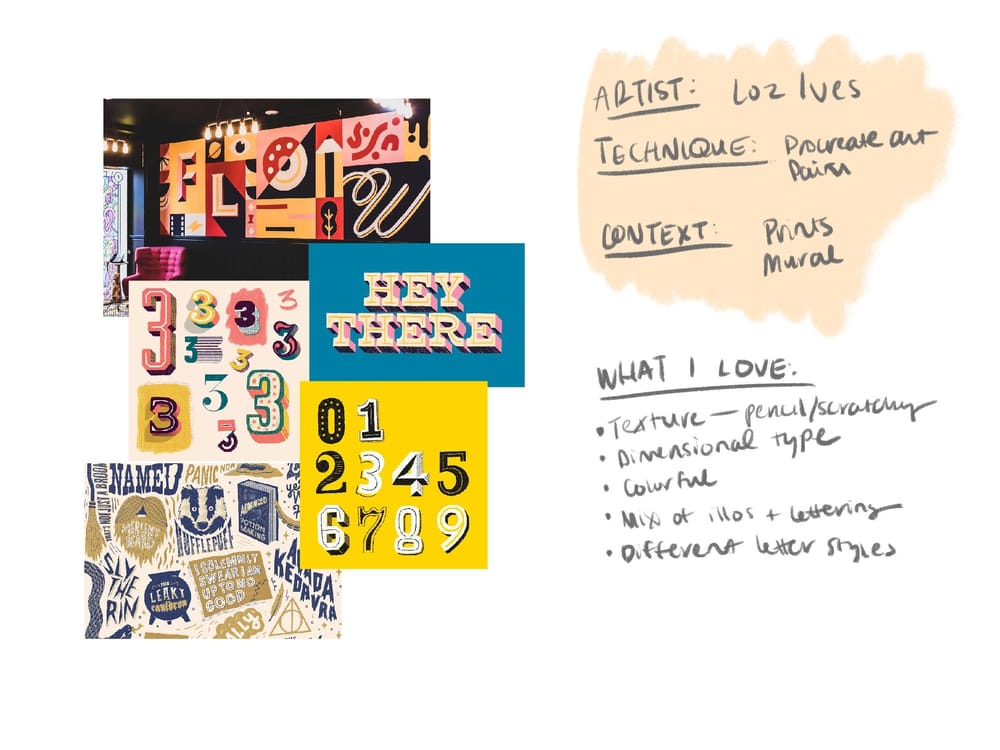 FLOW
HEY
THERE
3 3 3 3
3 3 3
3 3 3
3
0 1
2 3 4 5
6 7 8 9
NAMED
PANIC NOW
MERLIN'S
BEARD
HUFFLEPUFF
ADVANCED
POTION
MAKING
SLY
THE
RIN
THE
LEAKY
cauldron
I SOLEMNLY
SWEAR I AM
UP TO NO
GOOD
AVADA
KEDAVRA
ARTIST: Loz Ives
TECHNIQUE: Procreate art
Paint
CONTEXT: Prints
Mural
WHAT I LOVE:
• Texture — pencil/scratchy
• Dimensional type
• Colorful
• Mix of illos + lettering
• Different letter styles